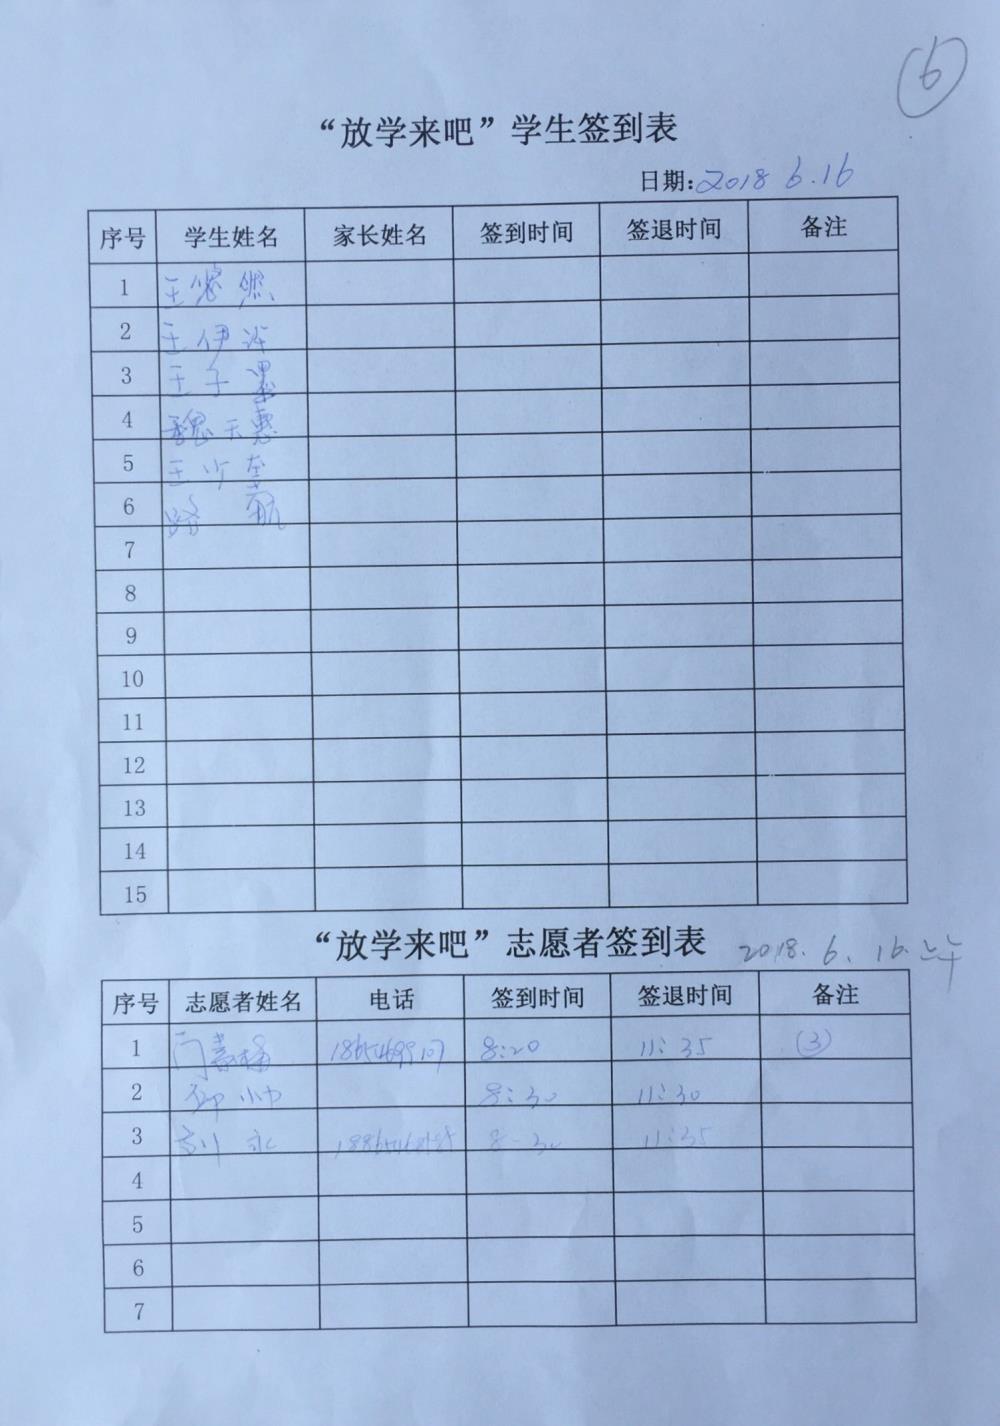 6
“放学来吧”学生签到表
日期: 2018 6.16
序号 学生姓名 家长姓名 签到时间 签退时间 备注
1 王悠然
2 王伊
3 王子墨
4 魏天惠
5 王少奎
6 路航
7
8
9
10
11
12
13
14
15
“放学来吧”志愿者签到表 2018.6.16.上午
序号 志愿者姓名 电话 签到时间 签退时间 备注
1 8:20 11:35 ③
2 8:30 11:30
3 8:30 11:35
4
5
6
7